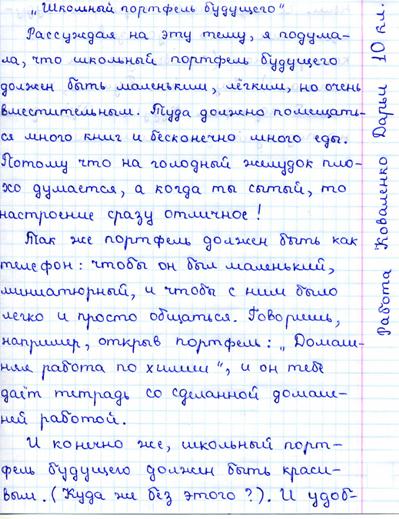 „Школьный портфель будущего"
Рассуждая на эту тему, я подума-
ла, что школьный портфель будущего
должен быть маленьким, лёгким, но очень
вместительным. Туда должно помещать-
ся много книг и бесконечно много еды.
Потому что на голодный желудок пло-
хо думается, а когда ты сытый, то
настроение сразу отличное!
Так же портфель должен быть как
телефон: чтобы он был маленький,
миниатюрный, и чтобы с ним было
легко и просто общаться. Говоришь,
например, открыв портфель: „Домаш-
няя работа по химии", и он тебе
даёт тетрадь со сделанной домаш-
ней работой.
И конечно же, школьный порт-
фель будущего должен быть краси-
вым. (Куда же без этого?). И удоб-
Работа Коваленко Дарьи 10 кл.